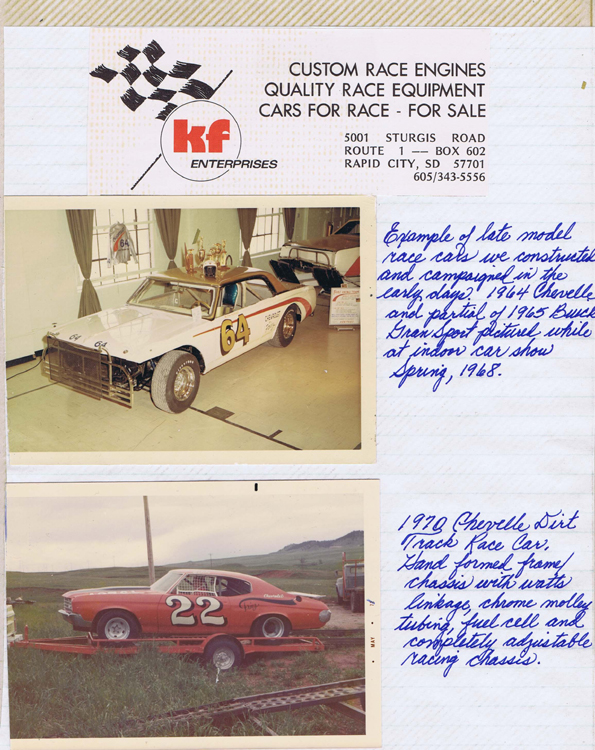 CUSTOM RACE ENGINES
QUALITY RACE EQUIPMENT
CARS FOR RACE - FOR SALE
kf
ENTERPRISES
5001 STURGIS ROAD
ROUTE 1 — BOX 602
RAPID CITY, SD 57701
605/343-5556
Example of late model
race cars we constructed
and campaigned in the
early days. 1964 Chevelle
and partial of 1965 Buick
Gran Sport pictured while
at indoor car show
Spring, 1968.
64
64
64
64
1970 Chevelle Dirt
Track Race Car.
Hand formed frame/
chassis with watts
linkage, chrome molley
tubing, fuel cell and
completely adjustable
racing chassis.
22
MAY